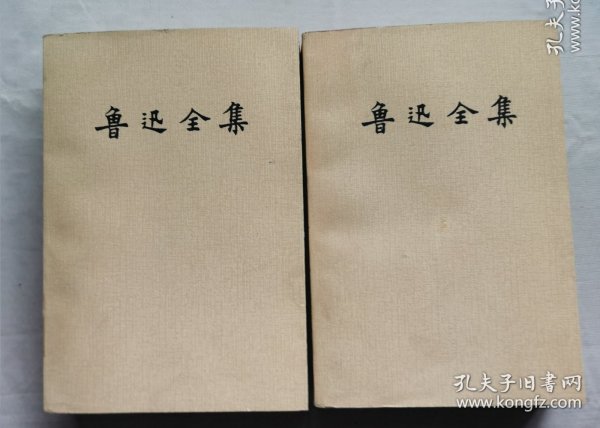 鲁迅全集
鲁迅全集
孔夫子旧書网
www.kongfz.com